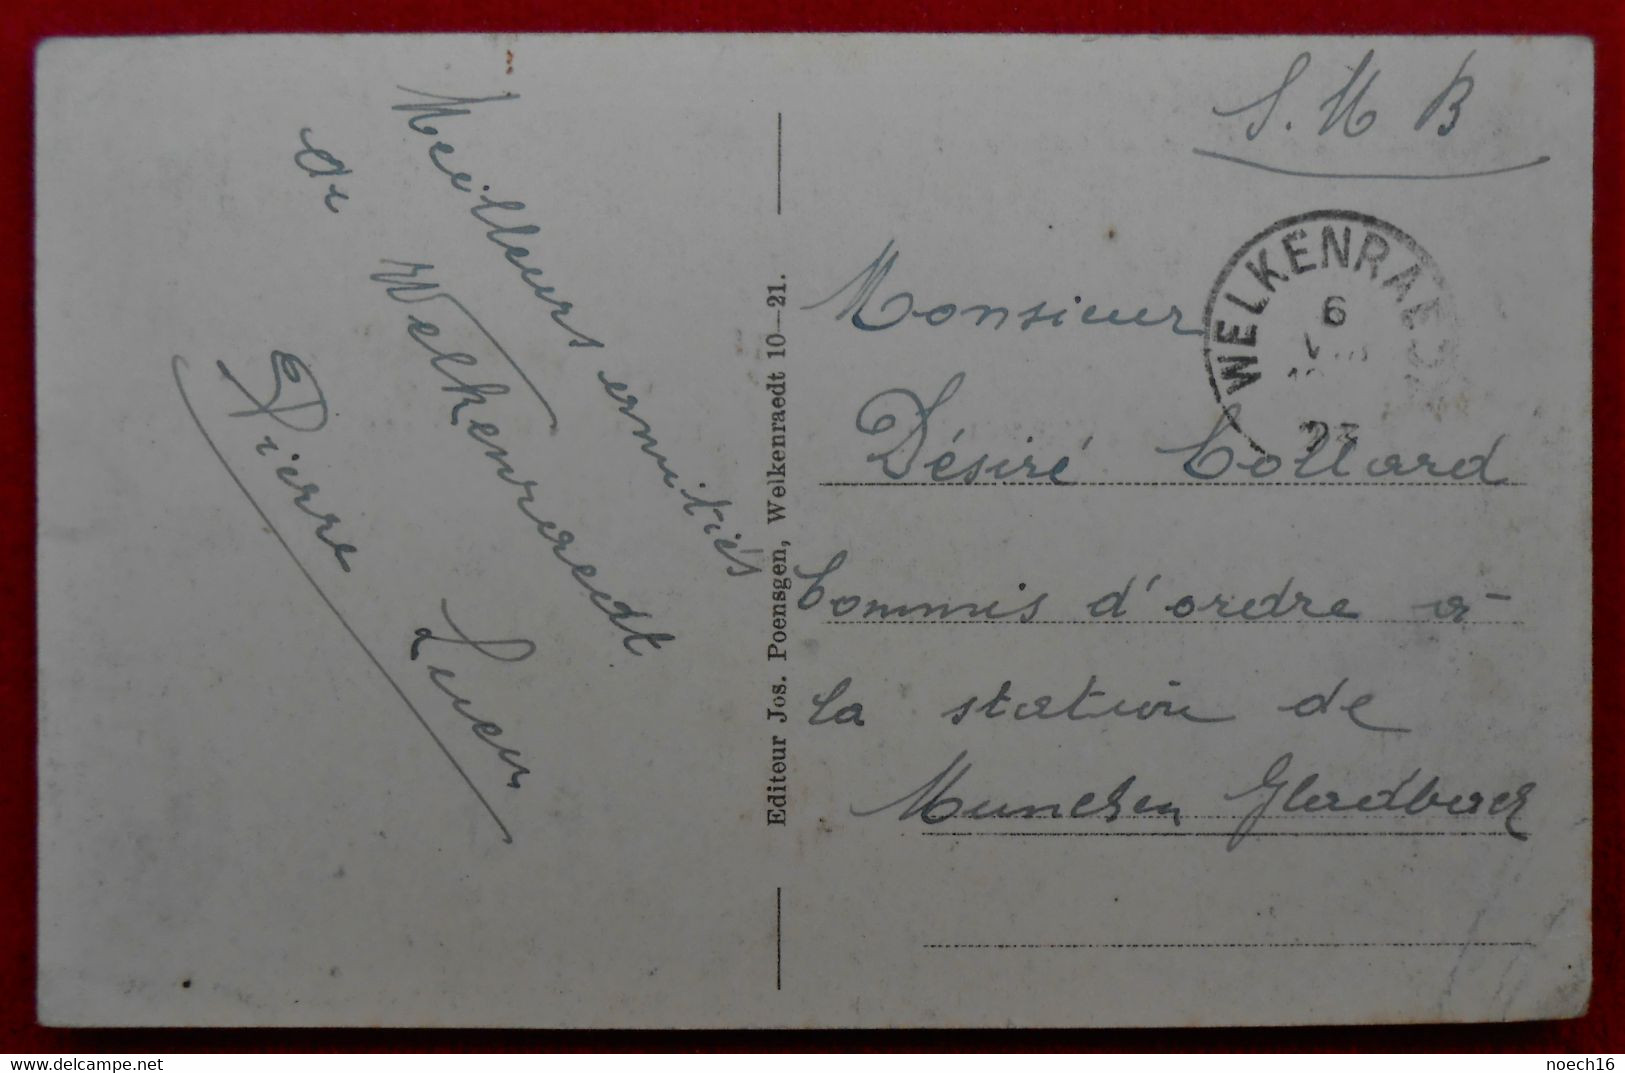 Meilleurs amitiés
de Welkenraedt
Pierre Lucen
Editeur Jos. Poensgen, Welkenraedt 10—21.
S. M B
WELKENRAE
6
VIII
23
Monsieur
Désiré Collard
Commis d'ordre à
la station de
Munchen Gladbach
noech16